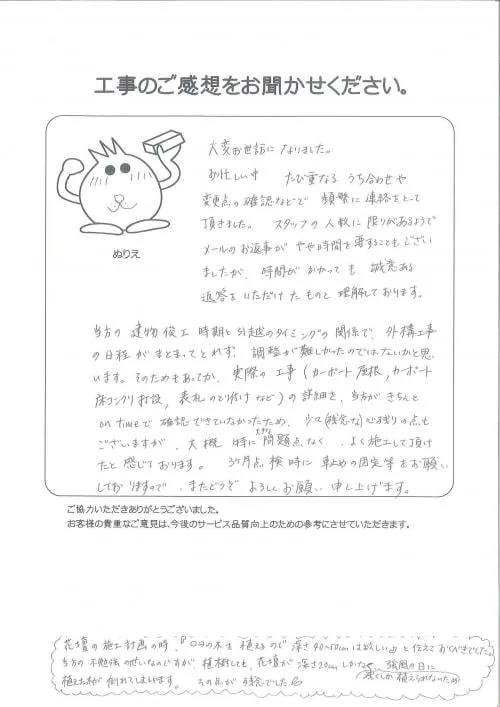 工事のご感想をお聞かせください。
大変お世話になりました。
お忙しい中 たび重なる うち合わせや
変更点の確認などで 頻繁に連絡をとって
頂きました。 スタッフの人数に限りがあるようで
メールのお返事が やや時間を要することもござい
ましたが、時間が かかっても 誠意ある
返答を いただけたものと 理解しております。
ぬりえ
当方の 建物 竣工 時期と引越のタイミングの関係で、外構工事
の日程が まとまってとれず、調整が難しかったのではないかと思
います。そのためもあってか、実際の工事(カーポート屋根、カーポート
床コンクリ打設、表札のとり付けなど)の詳細を、当方がきちんと
on timeで確認できていなかったため、少々(残念な)心残りの点も
ございますが、大概 特に大きな問題点なく、よく施工して頂け
たと感じております。 3ヶ月点検時に 車止めの固定等をお願い
しておりますので、またどうぞ よろしくお願い 申し上げます。
ご協力いただきありがとうございました。
お客様の貴重なご意見は、今後のサービス品質向上のための参考にさせていただきます。
花壇の施工計画の時、『〇〇の木を植えるので 深さ40~50cmは欲しい』と伝えておくべきでした。
当方の不勉強のせいなのですが 植樹しても、花壇が 深さ20cmしかなく、強風の日に
浅くしか植えられないため
植えた木が倒れてしまいます。 その点が残念でした